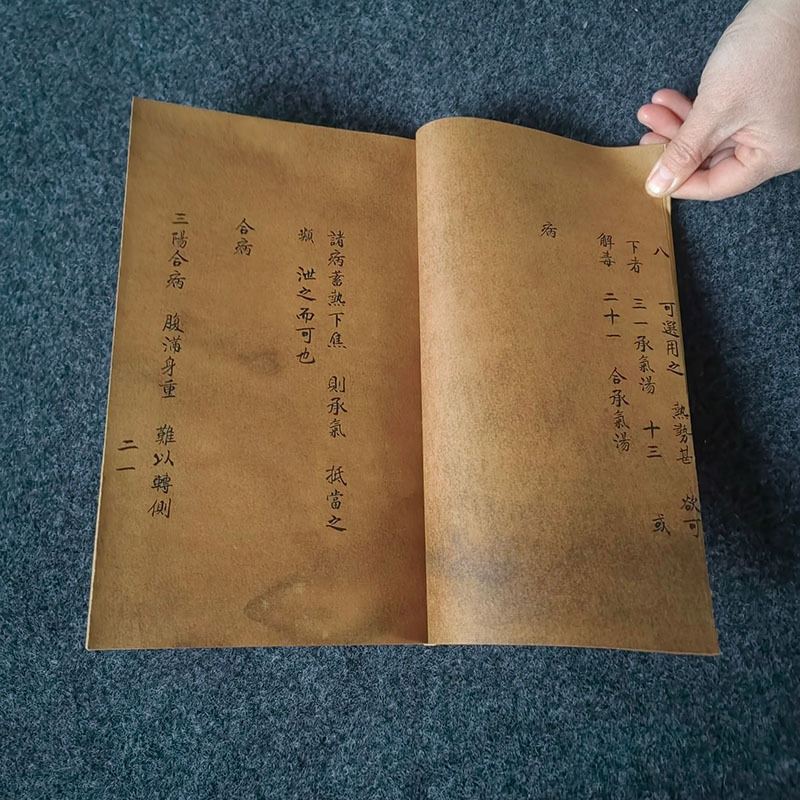 八 可選用之 熱勢甚 欲可
下者 三一承氣湯 十三 或
解毒 二十一 合承氣湯
病
諸病蓄熱下焦 則承氣 抵當之
類 泄之而可也
合病
三陽合病 腹滿身重 難以轉側
二一